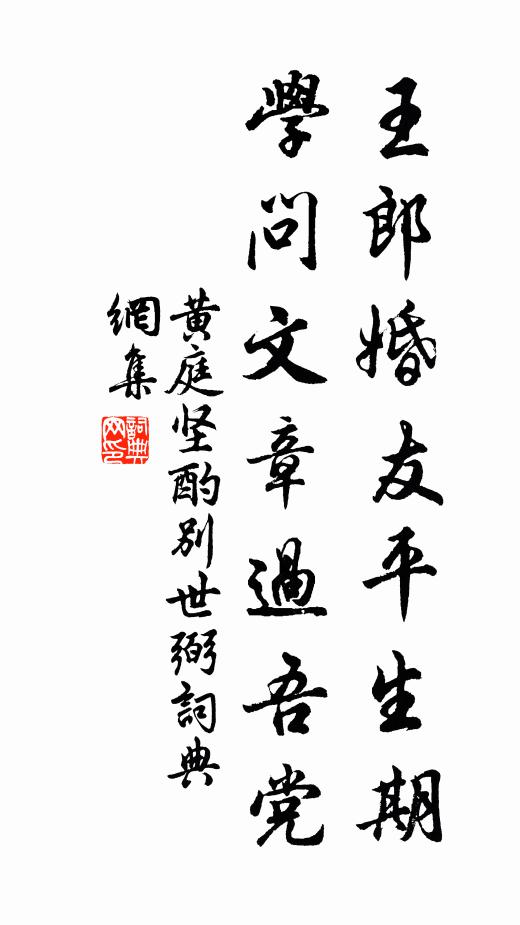 王郎婚友平生期
學問文章過吾党
黄庭坚酌别世弼詞典
網集
詞典
网印